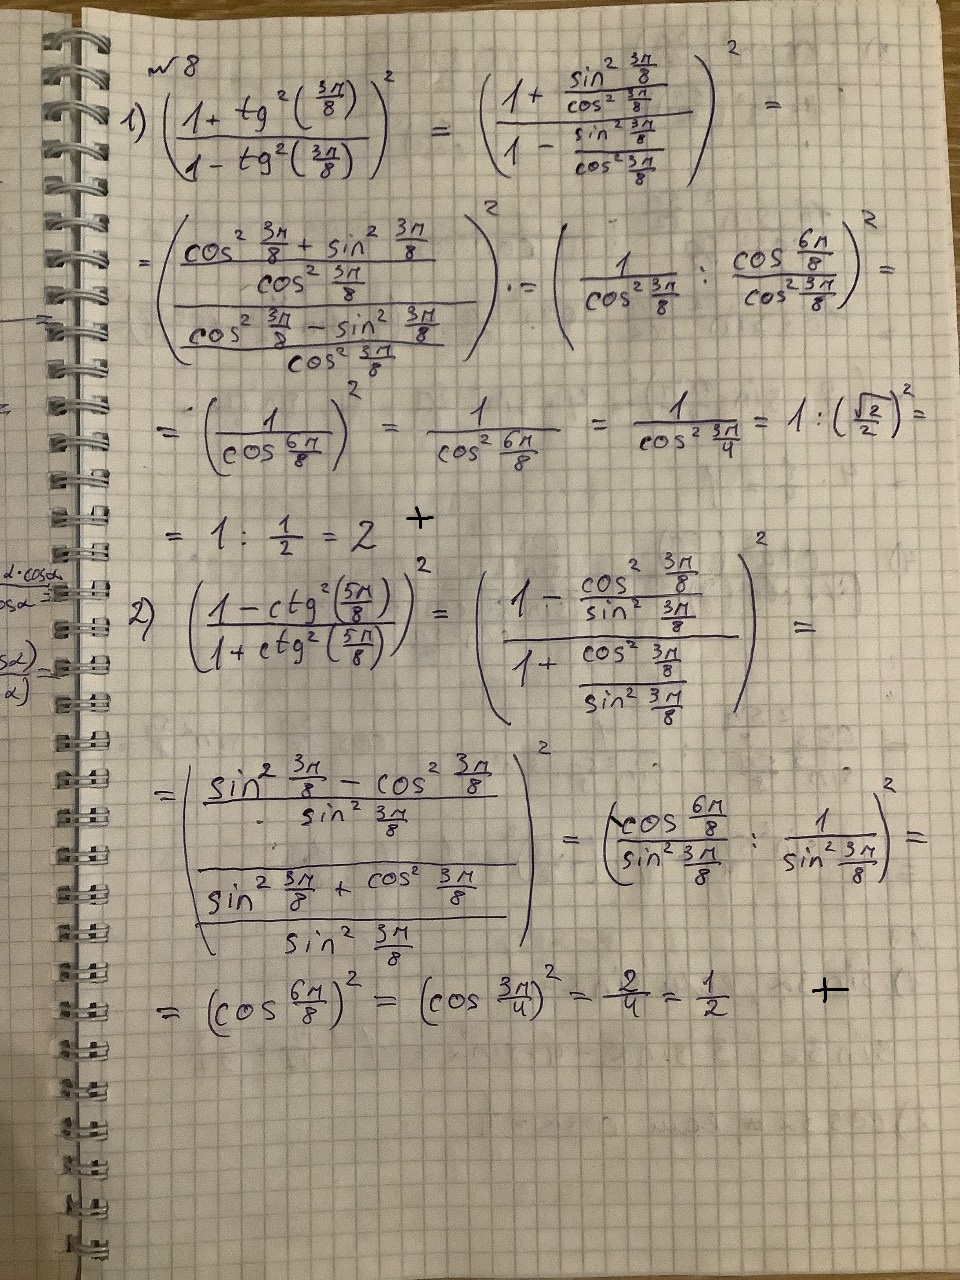 № 8
1) ((1 + tg²(3π/8))/(1 - tg²(3π/8)))² = ((1 + sin² 3π/8 / cos² 3π/8)/(1 - sin² 3π/8 / cos² 3π/8))² =
= (((cos² 3π/8 + sin² 3π/8)/(cos² 3π/8))/((cos² 3π/8 - sin² 3π/8)/(cos² 3π/8)))² = (1/(cos² 3π/8) : (cos 6π/8)/(cos² 3π/8))² =
= (1/(cos 6π/8))² = 1/(cos² 6π/8) = 1/(cos² 3π/4) = 1 : (√2/2)² =
= 1 : 1/2 = 2 +
2) ((1 - ctg²(5π/8))/(1 + ctg²(5π/8)))² = ((1 - cos² 3π/8 / sin² 3π/8)/(1 + cos² 3π/8 / sin² 3π/8))² =
= (((sin² 3π/8 - cos² 3π/8)/(sin² 3π/8))/((sin² 3π/8 + cos² 3π/8)/(sin² 3π/8)))² = ((cos 6π/8)/(sin² 3π/8) : 1/(sin² 3π/8))² =
= (cos 6π/8)² = (cos 3π/4)² = 2/4 = 1/2 +